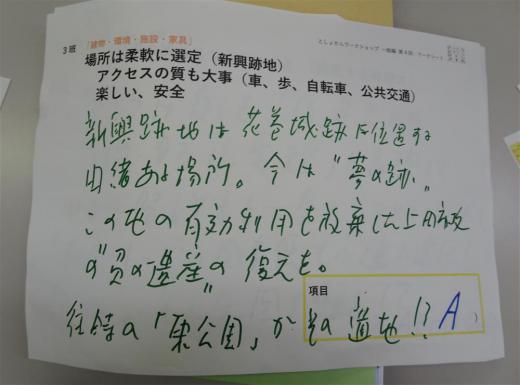 としょかんワークショップ 一般編 第4回 ワークシート
3班 「建物・環境・施設・家具」
場所は柔軟に選定（新興跡地）
アクセスの質も大事（車、歩、自転車、公共交通）
楽しい、安全
新興跡地は花巻城跡に位置する
由緒ある場所。今は"夢の跡"
この地の有効利用を放棄した上田市政
の"負の遺産"の復元を。
項目
往時の「東公園」がその道地!? A